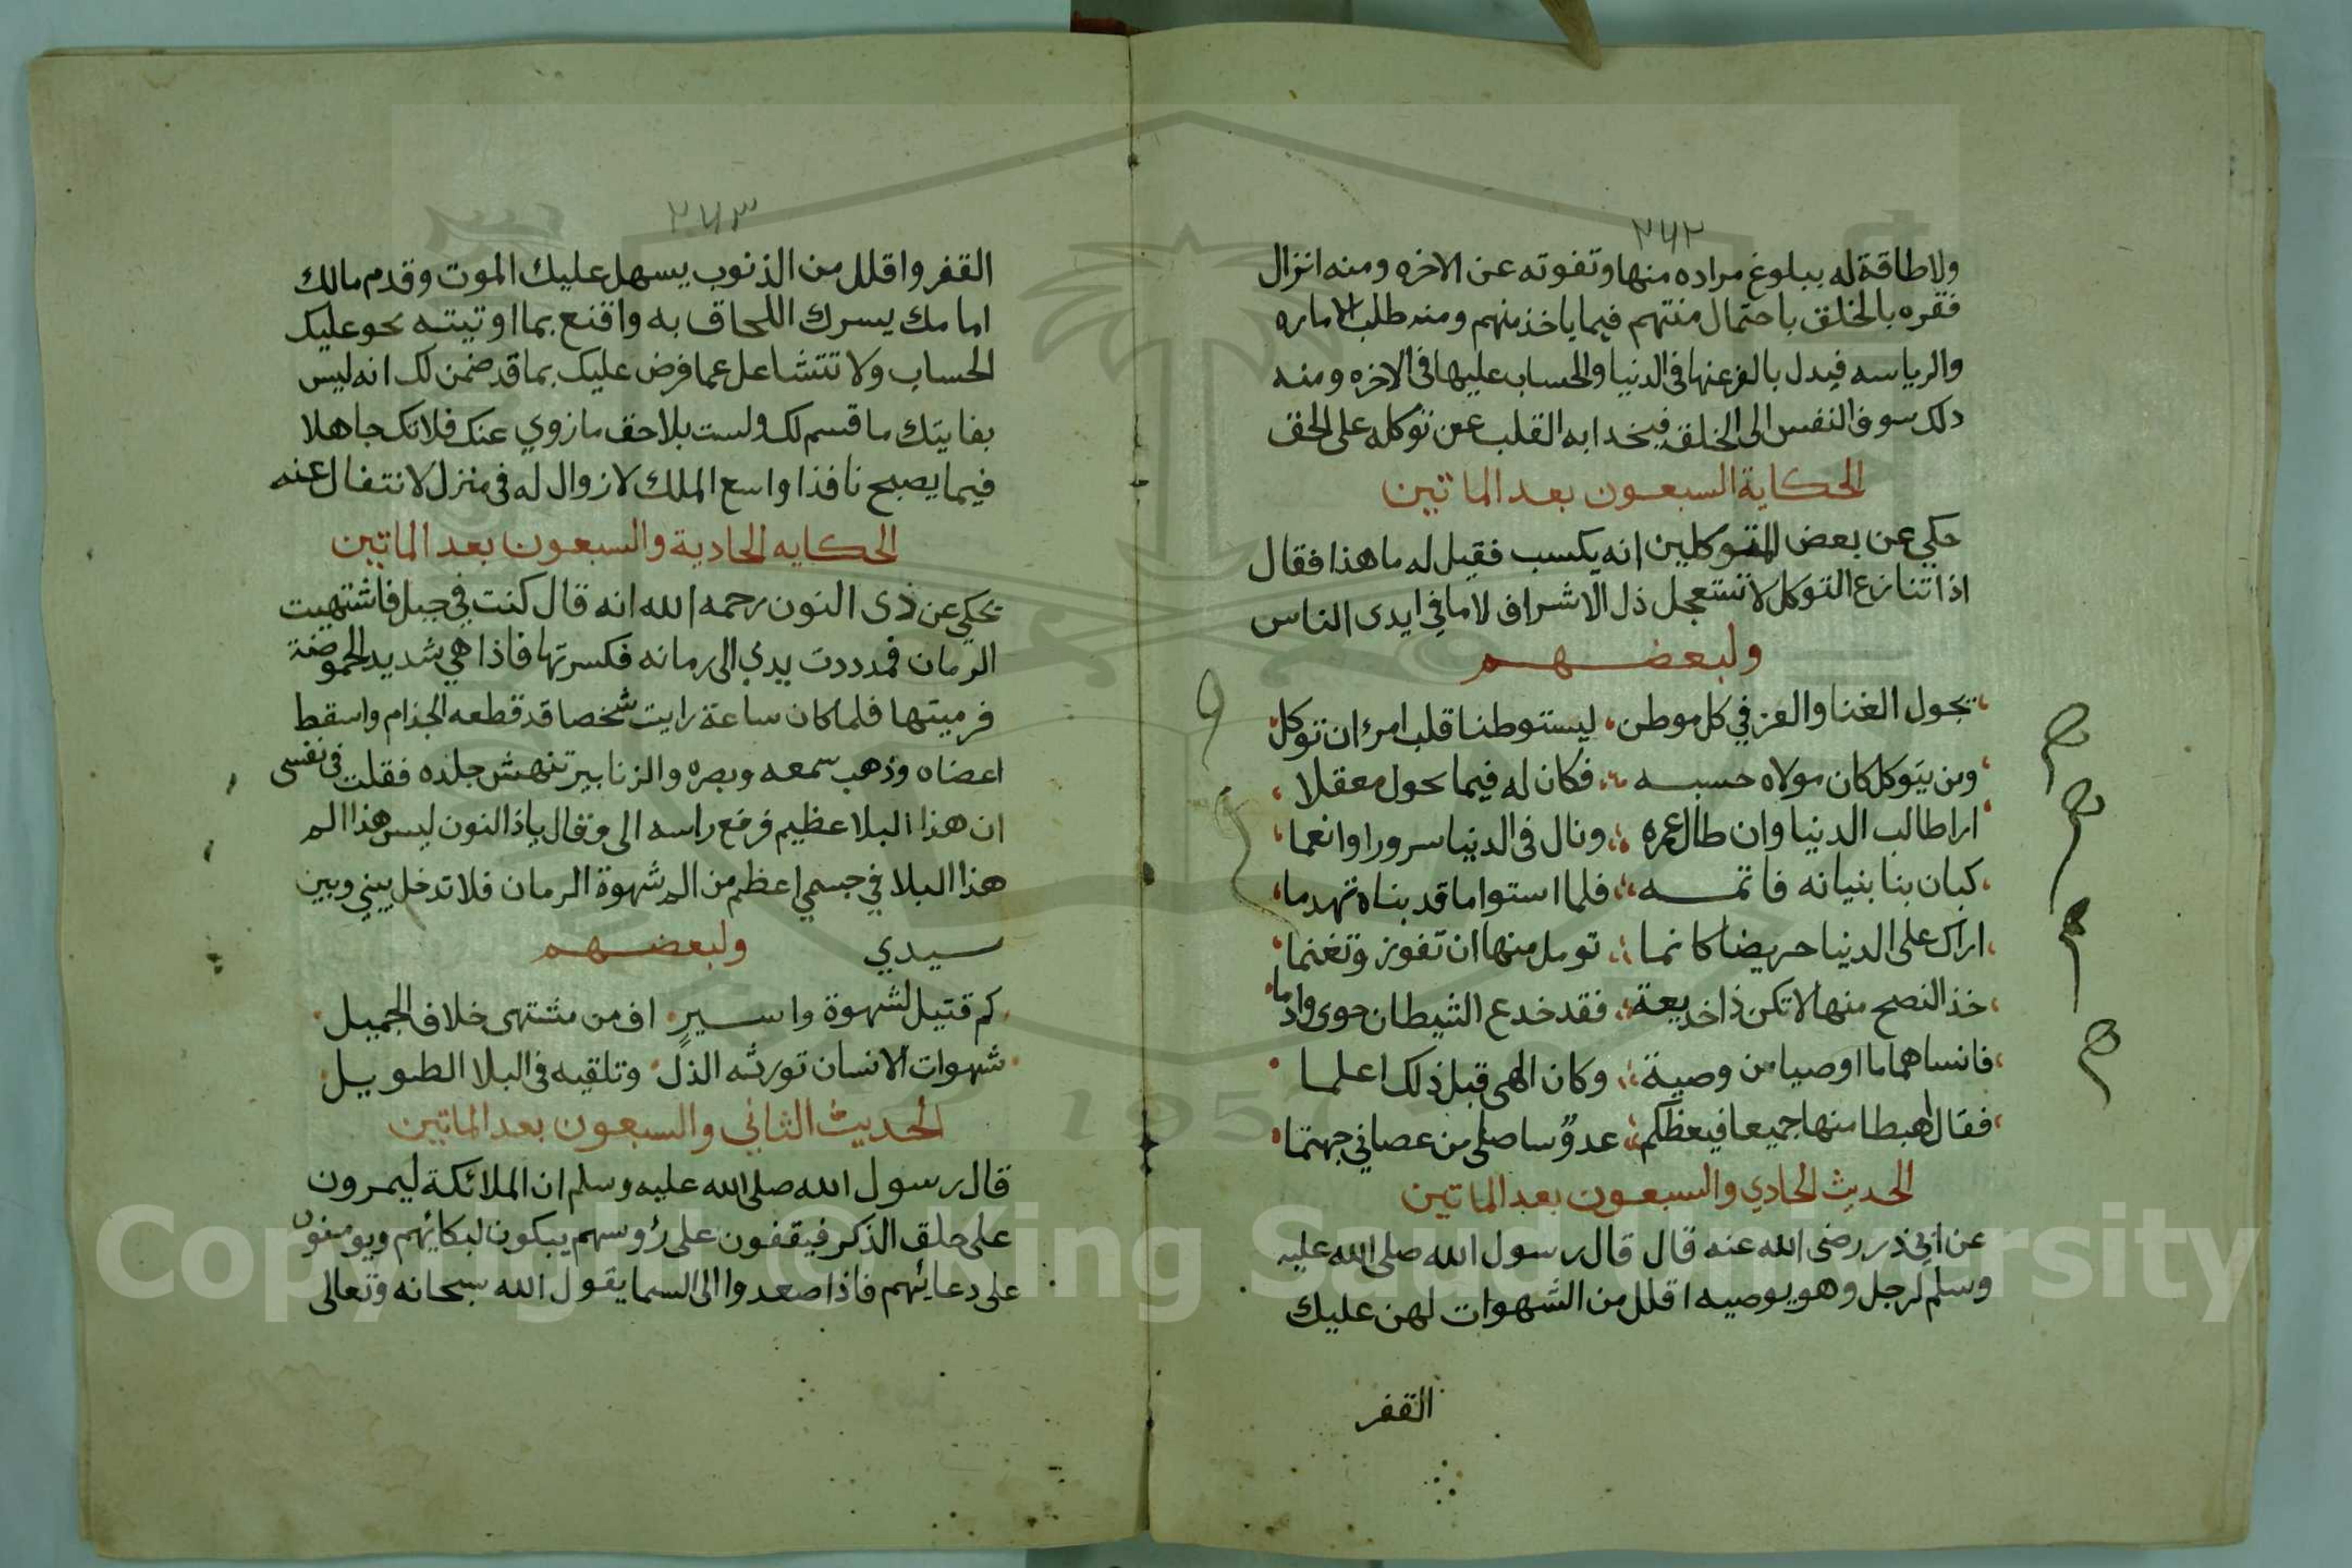 ٢٤٢
ولا طاقة له ببلوغ مراده منها وتفوته عن الاخره ومنه انزال
فقره بالخلق باحتمال منتهم فيما ياخذ منهم ومنه طلب الاماره
والرياسه فيدل بالعز عنها في الدنيا والحساب عليها في الاخره ومنه
دلك سوف النفس الى الخلق فيخدا به القلب عن توكله على الحق
الحكاية السبعون بعد الماتين
حكي عن بعض المتوكلين انه يكسب فقيل له ما هذا فقال
اذا تنازع التوكل لا تستعجل ذل الاشراف لا ما في ايدى الناس
ولبعضهم
يجول الغنا والعز في كل موطن ليستوطنا قلب امرء ان توكل
ومن يتوكل كان مولاه حسبه فكان له فيما يحول معقلا
ارا طالب الدنيا وان طال عمره ونال في الدنيا سرورا وانعما
كبان بنا بنيانه فاتمه فلما استوا ما قد بناه تهدما
اراك على الدنيا حريضا كانما تومل منها ان تفوز وتغنما
خذ النصح منها لا تكن ذا خديعة فقد خدع الشيطان حوى وادما
فانساهما ما اوصيا من وصية وكان الهى قبل ذلك اعلما
فقال اهبطا منها جميعا فبعظكم عدوّ ساصلى من عصاني جهنما
الحديث الحادي والسبعون بعد الماتين
عن ابي ذر رضى الله عنه قال قال رسول الله صلى الله عليه
وسلم لرجل وهو يوصيه اقلل من الشهوات لهن عليك
القفر
٢٤٣
القفر واقلل من الذنوب يسهل عليك الموت وقدم مالك
امامك يسرك اللحاق به واقنع بما اوتيته يحو عليك
الحساب ولا تتشاعل عما فرض عليك بما قد ضمن لك انه ليس
بفايتك ما قسم لك ولست بلاحق ما زوي عنك فلا تك جاهلا
فيما يصبح نافذا واسع الملك لا زوال له في منزل لا نتفال عنه
الحكايه الحادية والسبعون بعد الماتين
يحكي عن ذى النون رحمه الله انه قال كنت في جبل فاشتهيت
الرمان فمددت يدي الى رمانه فكسرتها فاذا هي شديد الحموضة
فرميتها فلما كان ساعة رايت شخصا قد قطعه الجذام واسقط
اعضاه وذهب سمعه وبصره والزنابير تنهش جلده فقلت في نفسى
ان هذا البلا عظيم فرفع راسه الى وقال ياذا النون ليس هذا الم
هذا البلا في جسمي اعظم من الم شهوة الرمان فلا تدخل بيني وبين
سيدي ولبعضهم
كم قتيل لشهوة واسير اف من مشتهى خلاف الجميل
شهوات الانسان تورثه الذل وتلقيه في البلا الطويل
الحديث الثاني والسبعون بعد الماتين
قال رسول الله صلى الله عليه وسلم ان الملائكة ليمرون
على حلق الذكر فيقفون على رؤوسهم يبكون لبكائهم ويومنون
على دعائهم فاذا صعدوا الى السما يقول الله سبحانه وتعالى
Copyright © King Saud University
1957